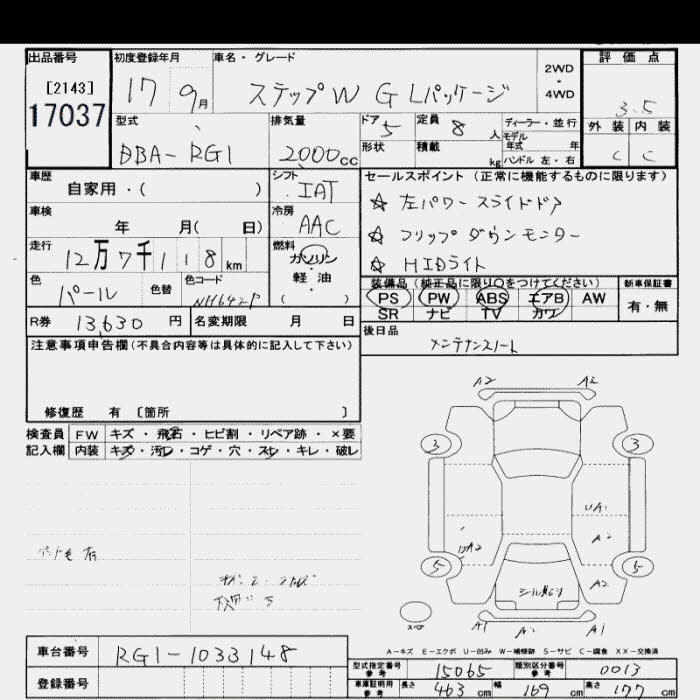 出品番号 初度登録年月 車名・グレード 評価点
[2143]
17037
17 9月 ステップW G Lパッケージ 2WD・4WD 3.5
型式 排気量 ドア 5 定員 8 人 ディーラー・並行 外装 内装
モデル年式 年
DBA-RG1 2000cc 形状 積載 kg ハンドル 左・右 C C
車歴 シフト セールスポイント (正常に機能するものに限ります)
自家用・( ) IAT ☆ 左パワースライドドア
車検 冷房
年 月( 日) AAC ☆ フリップダウンモニター
走行 燃料
12万7千118km ガソリン ☆ HIDライト
色 色替 色コード 軽油 装備品 (純正品に限り○をつけてください) 新車保証書
パール NH642P ( ) PS PW ABS エアB AW 有・無
SR ナビ TV カワ
R券 13,630 円 名変期限 月 日 後日品
注意事項申告欄(不具合内容等は具体的に記入して下さい) メンテナンスノート
修復歴 有 〔箇所 〕
検査員 FW キズ・飛石・ヒビ割・リペア跡・×要
記入欄 内装 キズ・汚レ・コゲ・穴・スレ・キレ・破レ
A2 A2
3 3
UA1
A2
A2
5 5
A2
A1 A1
A-キズ E-エクボ U-凹み W-補修跡 S-サビ C-腐食 XX-交換済
車台番号 RG1-1033148
型式指定番号 参考 15065 類別区分番号 参考 0013
登録番号
車庫証明用 参考 長さ 463 cm 幅 169 cm 高さ 177 cm